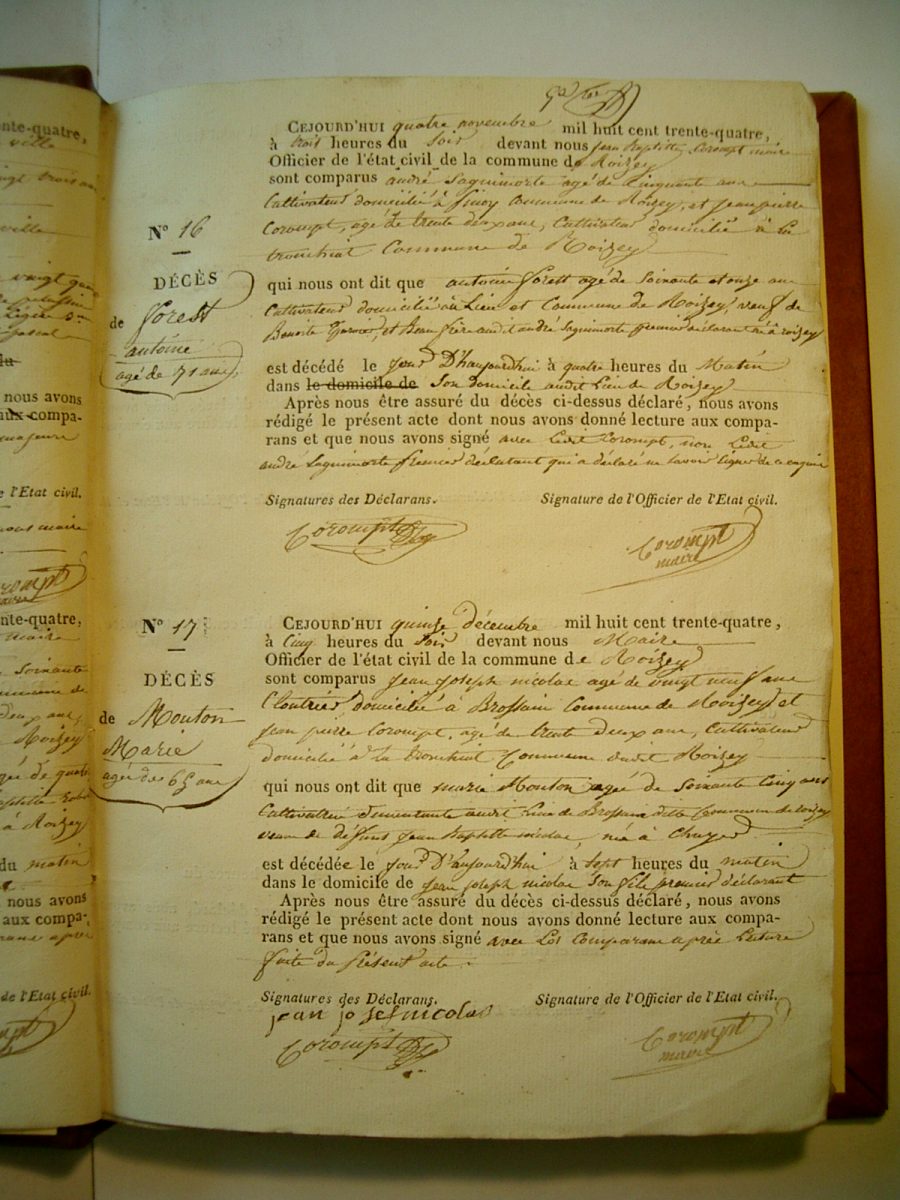 nte-quatre,
ville
ngt trois an
ville
vingt quat
nous avons
aux compa-
majeure
e l'Etat civil.
nous maire
nte-quatre,
maire
soixante
deux ans,
Roizey
à Roizey
du matin
nous avons
aux compa-
de l'Etat civil.
CEJOURD'HUI quatre novembre mil huit cent trente-quatre,
à trois heures du soir devant nous jean Baptiste Corompt maire
Officier de l'état civil de la commune de Roizey
sont comparus andré Saquimorte agé de Cinquante ans
Cultivateur domicilié à commune de Roizey, et jean pierre
Corompt, agé de trente deux ans, Cultivateur domicilié à la
tronchiat Commune de Roizey
N° 16
DÉCÈS
de Forest
antoine
agé de 71 ans
qui nous ont dit que antoine Forest agé de Soixante et onze ans
Cultivateur domicilié au Lieu et Commune de Roizey, veuf de
Benoite et Beau frère audit andré Saquimorte premier déclarant né à roizey
est décédé le jour D'haujourd'hui à quatre heures du Matin
dans le domicile de Son domicile audit Lieu de Roizey
Après nous être assuré du décès ci-dessus déclaré, nous avons
rédigé le présent acte dont nous avons donné lecture aux compa-
rans et que nous avons signé avec Ledit Corompt, non Ledit
andré Saquimorte premier déclarant qui a déclaré ne Savoir Signer de ce enquis
Signatures des Déclarans. Signature de l'Officier de l'Etat civil.
Corompt Corompt
maire
N° 17
DÉCÈS
de Mouton
Marie
agée de 65 ans
CEJOURD'HUI quinze décembre mil huit cent trente-quatre,
à Cinq heures du Soir devant nous Maire
Officier de l'état civil de la commune de Roizey
sont comparus jean joseph nicolas agé de vingt neuf ans
domicilié à Brossain Commune de Roizey et
jean pierre Corompt, agé de trente deux ans, Cultivateur
domicilié à La tronchiat Commune dudit Roizey
qui nous ont dit que marie Mouton agée de Soixante Cinq ans
Cultivatrice demeurante audit Lieu de Brossain dite Commune de roizey
veuve de défunt jean Baptiste nicolas, née à Chuyer
est décédée le jour D'haujourd'hui à Sept heures du matin
dans le domicile de jean joseph nicolas Son fils premier déclarant
Après nous être assuré du décès ci-dessus déclaré, nous avons
rédigé le présent acte dont nous avons donné lecture aux compa-
rans et que nous avons signé avec Les Comparans après Lecture
faite du présent acte.
Signatures des Déclarans. Signature de l'Officier de l'Etat civil.
jean josef nicolas
Corompt Corompt
maire